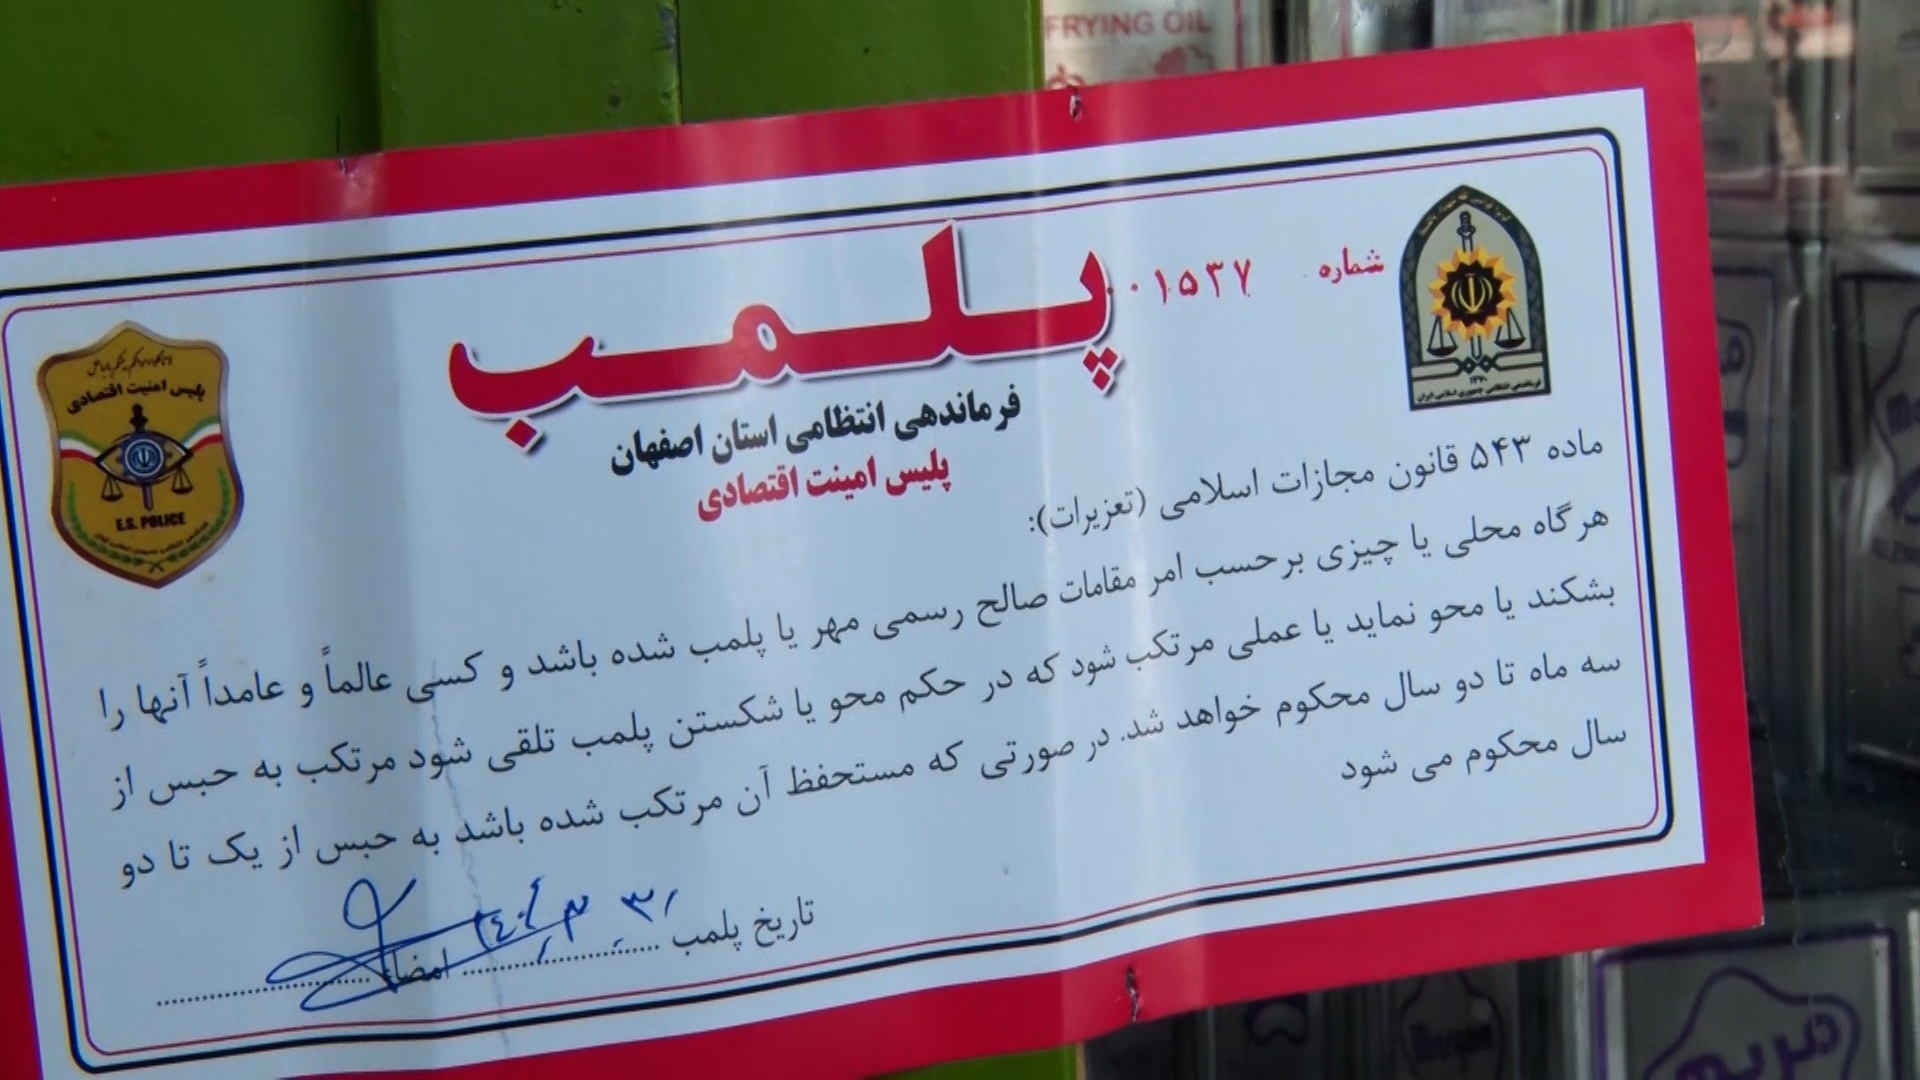 FRYING OIL
پلمب
شماره ۰۰۱۵۳۷
فرماندهی انتظامی استان اصفهان
پلیس امینت اقتصادی
پلیس امنیت اقتصادی
E.S. POLICE
۱۳۷۰
فرماندهی انتظامی جمهوری اسلامی ایران
ماده ۵۴۳ قانون مجازات اسلامی (تعزیرات):
هرگاه محلی یا چیزی برحسب امر مقامات صالح رسمی مهر یا پلمب شده باشد و کسی عالماً و عامداً آنها را
بشکند یا محو نماید یا عملی مرتکب شود که در حکم محو یا شکستن پلمب تلقی شود مرتکب به حبس از
سه ماه تا دو سال محکوم خواهد شد. در صورتی که مستحفظ آن مرتکب شده باشد به حبس از یک تا دو
سال محکوم می شود
تاریخ پلمب امضاء
مریم